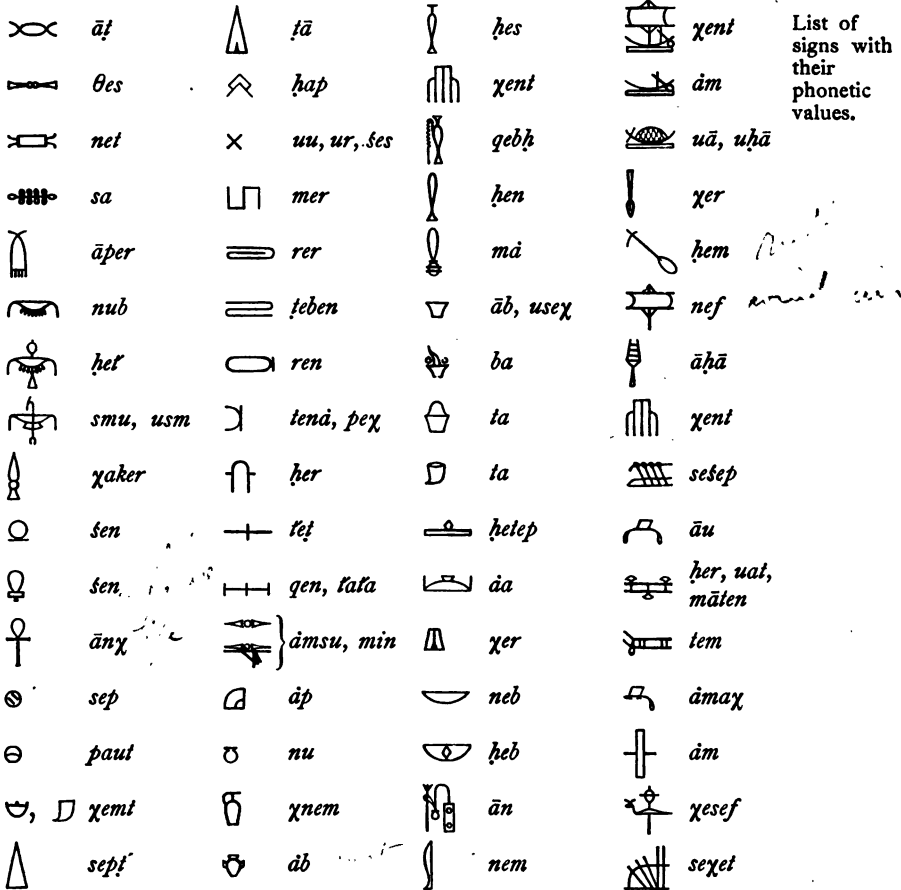 āṭ
θes
net
sa
āper
nub
ḥeť
smu, usm
χaker
śen
śen
ānχ
sep
paut
, χemt
septʼ
ṭā
ḥap
uu, ur, śes
mer
rer
ṭeben
ren
tenȧ, peχ
ḥer
ťeṭ
qen, ťaťa
ȧmsu, min
ȧp
nu
χnem
ȧb
ḥes
χent
qebḥ
ḥen
mȧ
āb, useχ
ba
ta
ta
ḥetep
ȧa
χer
neb
ḥeb
ān
nem
χent
ȧm
uā, uḥā
χer
ḥem
nef
āḥā
χent
seśep
āu
ḥer, uat,
māten
tem
ȧmaχ
ȧm
χesef
seχet
List of
signs with
their
phonetic
values.